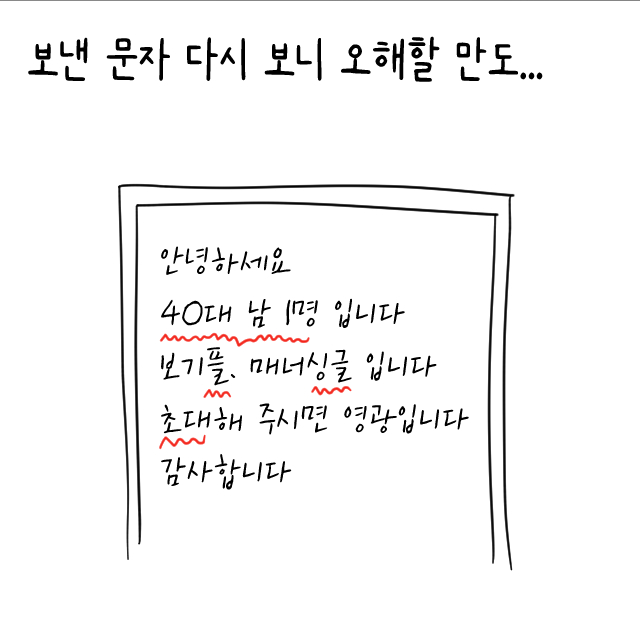 보낸 문자 다시 보니 오해할 만도...
안녕하세요
40대 남 1명 입니다
보기플. 매너싱글 입니다
초대해 주시면 영광입니다
감사합니다